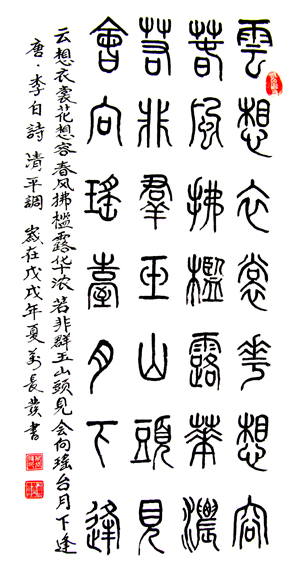 雲想衣裳花想容
春風拂檻露華濃
若非羣玉山頭見
會向瑤臺月下逢
云想衣裳花想容春风拂槛露华浓若非群玉山头見会向瑶台月下逢
唐·李白詩清平調 歲在戊戌年夏萬長發書